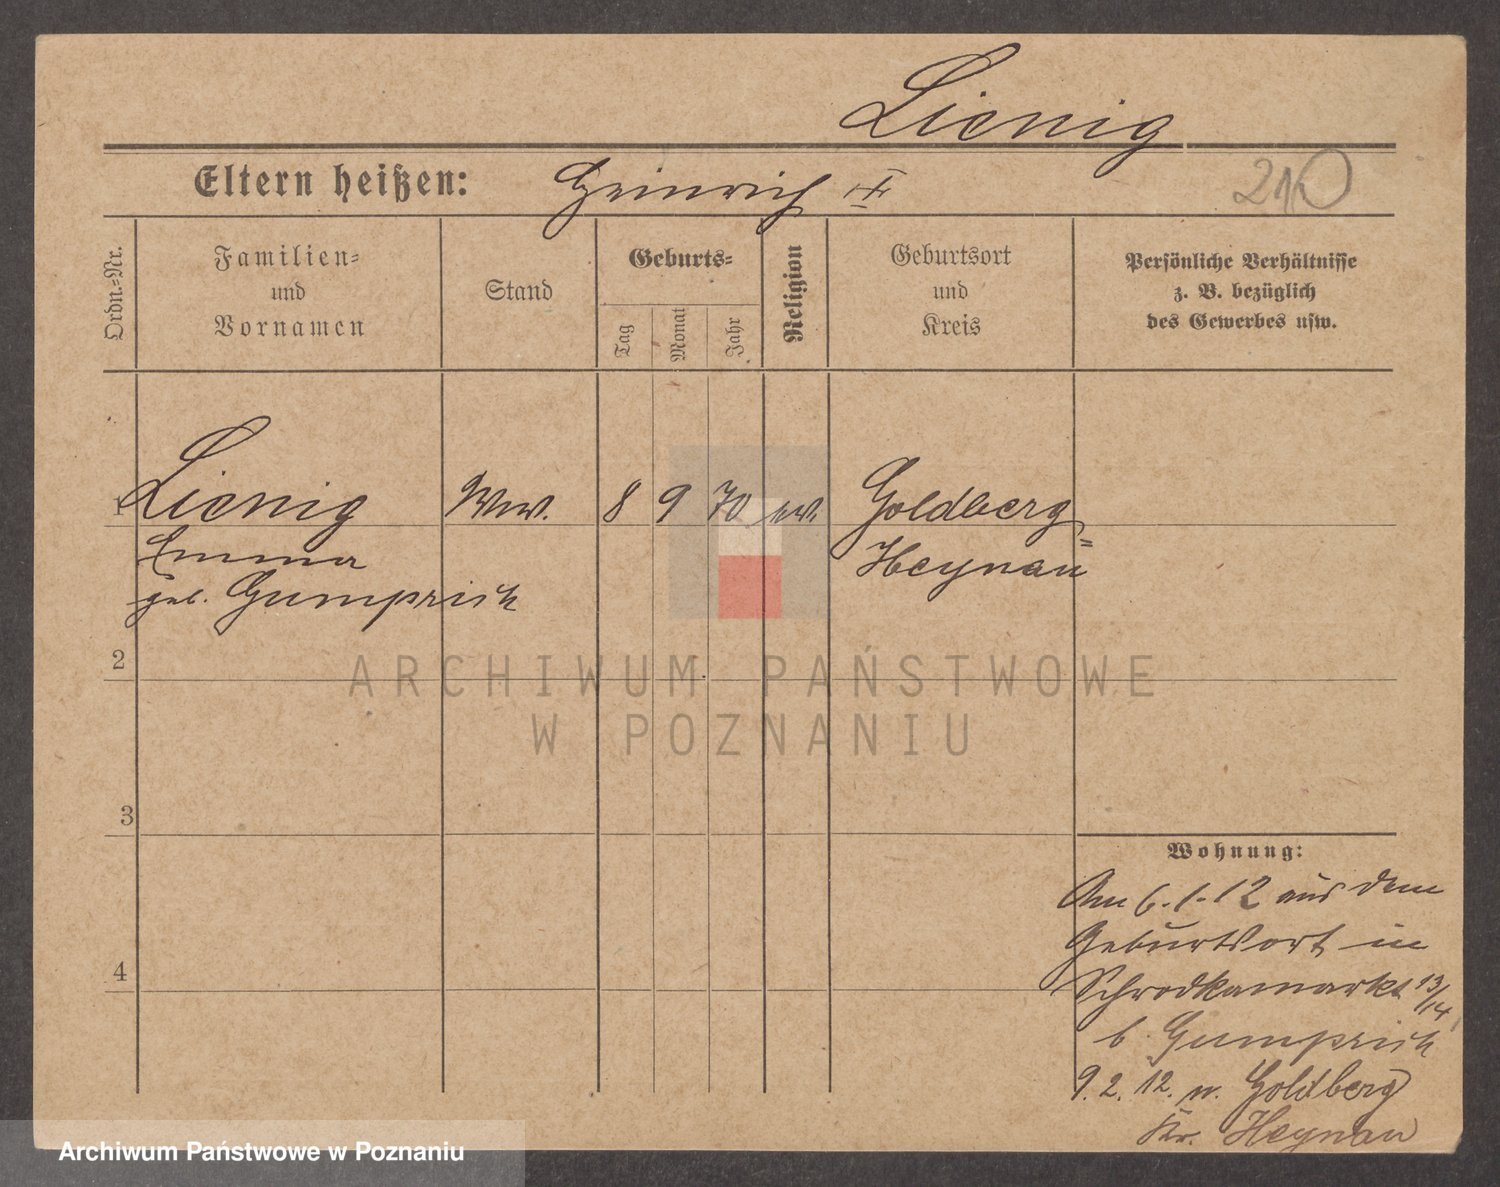 Lienig
Eltern heißen: Heinrich
210
Ordn.-Nr.
Familien-
und
Vornamen
Stand
Geburts-
Tag
Monat
Jahr
Religion
Geburtsort
und
Kreis
Persönliche Verhältnisse
z. B. bezüglich
des Gewerbes usw.
1 Lienig Ww. 8 9 70 ev. Goldberg
Emma Heynau
geb. Gumprich
2
3
4
Wohnung:
Am 6.1.12 aus dem
Geburtsort in
Schrodkamarkt 13/14
b. Gumprich
9.2.12. n. Goldberg
Kr. Heynau
ARCHIWUM PAŃSTWOWE
W POZNANIU
Archiwum Państwowe w Poznaniu